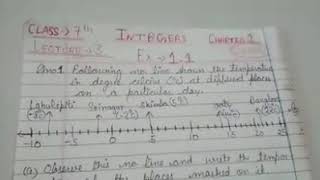 CLASS → 7th INTEGERS CHAPTER 1
LECTURE → 3
Ex → 1.1
Qno1 Following no line shows the temperature
in degree celcius (°C) at different places
on a particular day.
Lahulspiti Srinagar Shimla (5°C) Ooty Bangalore
(-8°C) (-2°C) (14°C) (22°C)
-10 -5 0 5 10 15 20 25
(a) Observe this no line and write the tempera
of the places marked on it